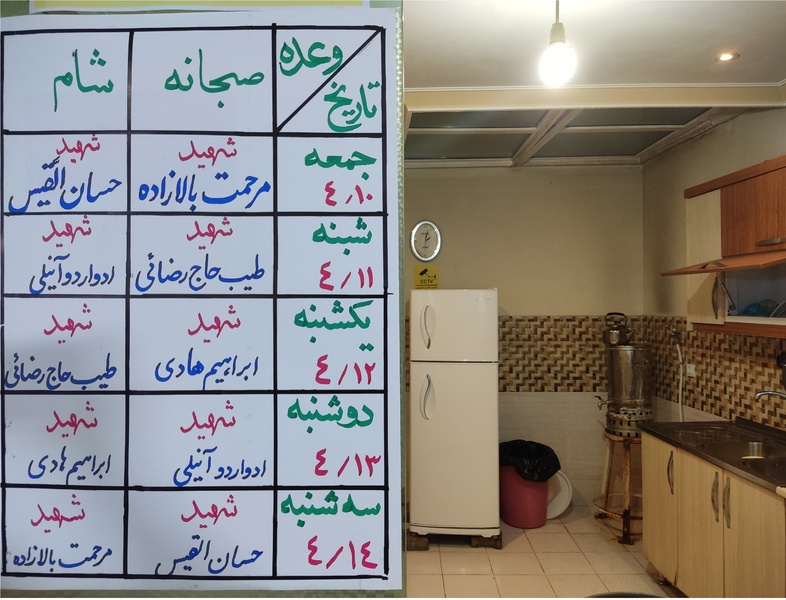 وعده
تاریخ
صبحانه
شام
جمعه
۴٫۱۰
شهید
مرحمت بالازاده
شهید
حسان القیس
شنبه
۴/۱۱
شهید
طیب حاج رضائی
شهید
ادواردو آنیلی
یکشنبه
۴/۱۲
شهید
ابراهیم هادی
شهید
طیب حاج رضائی
دوشنبه
۴/۱۳
شهید
ادواردو آنیلی
شهید
ابراهیم هادی
سه شنبه
۴/۱۴
شهید
حسان القیس
شهید
مرحمت بالازاده
CCTV